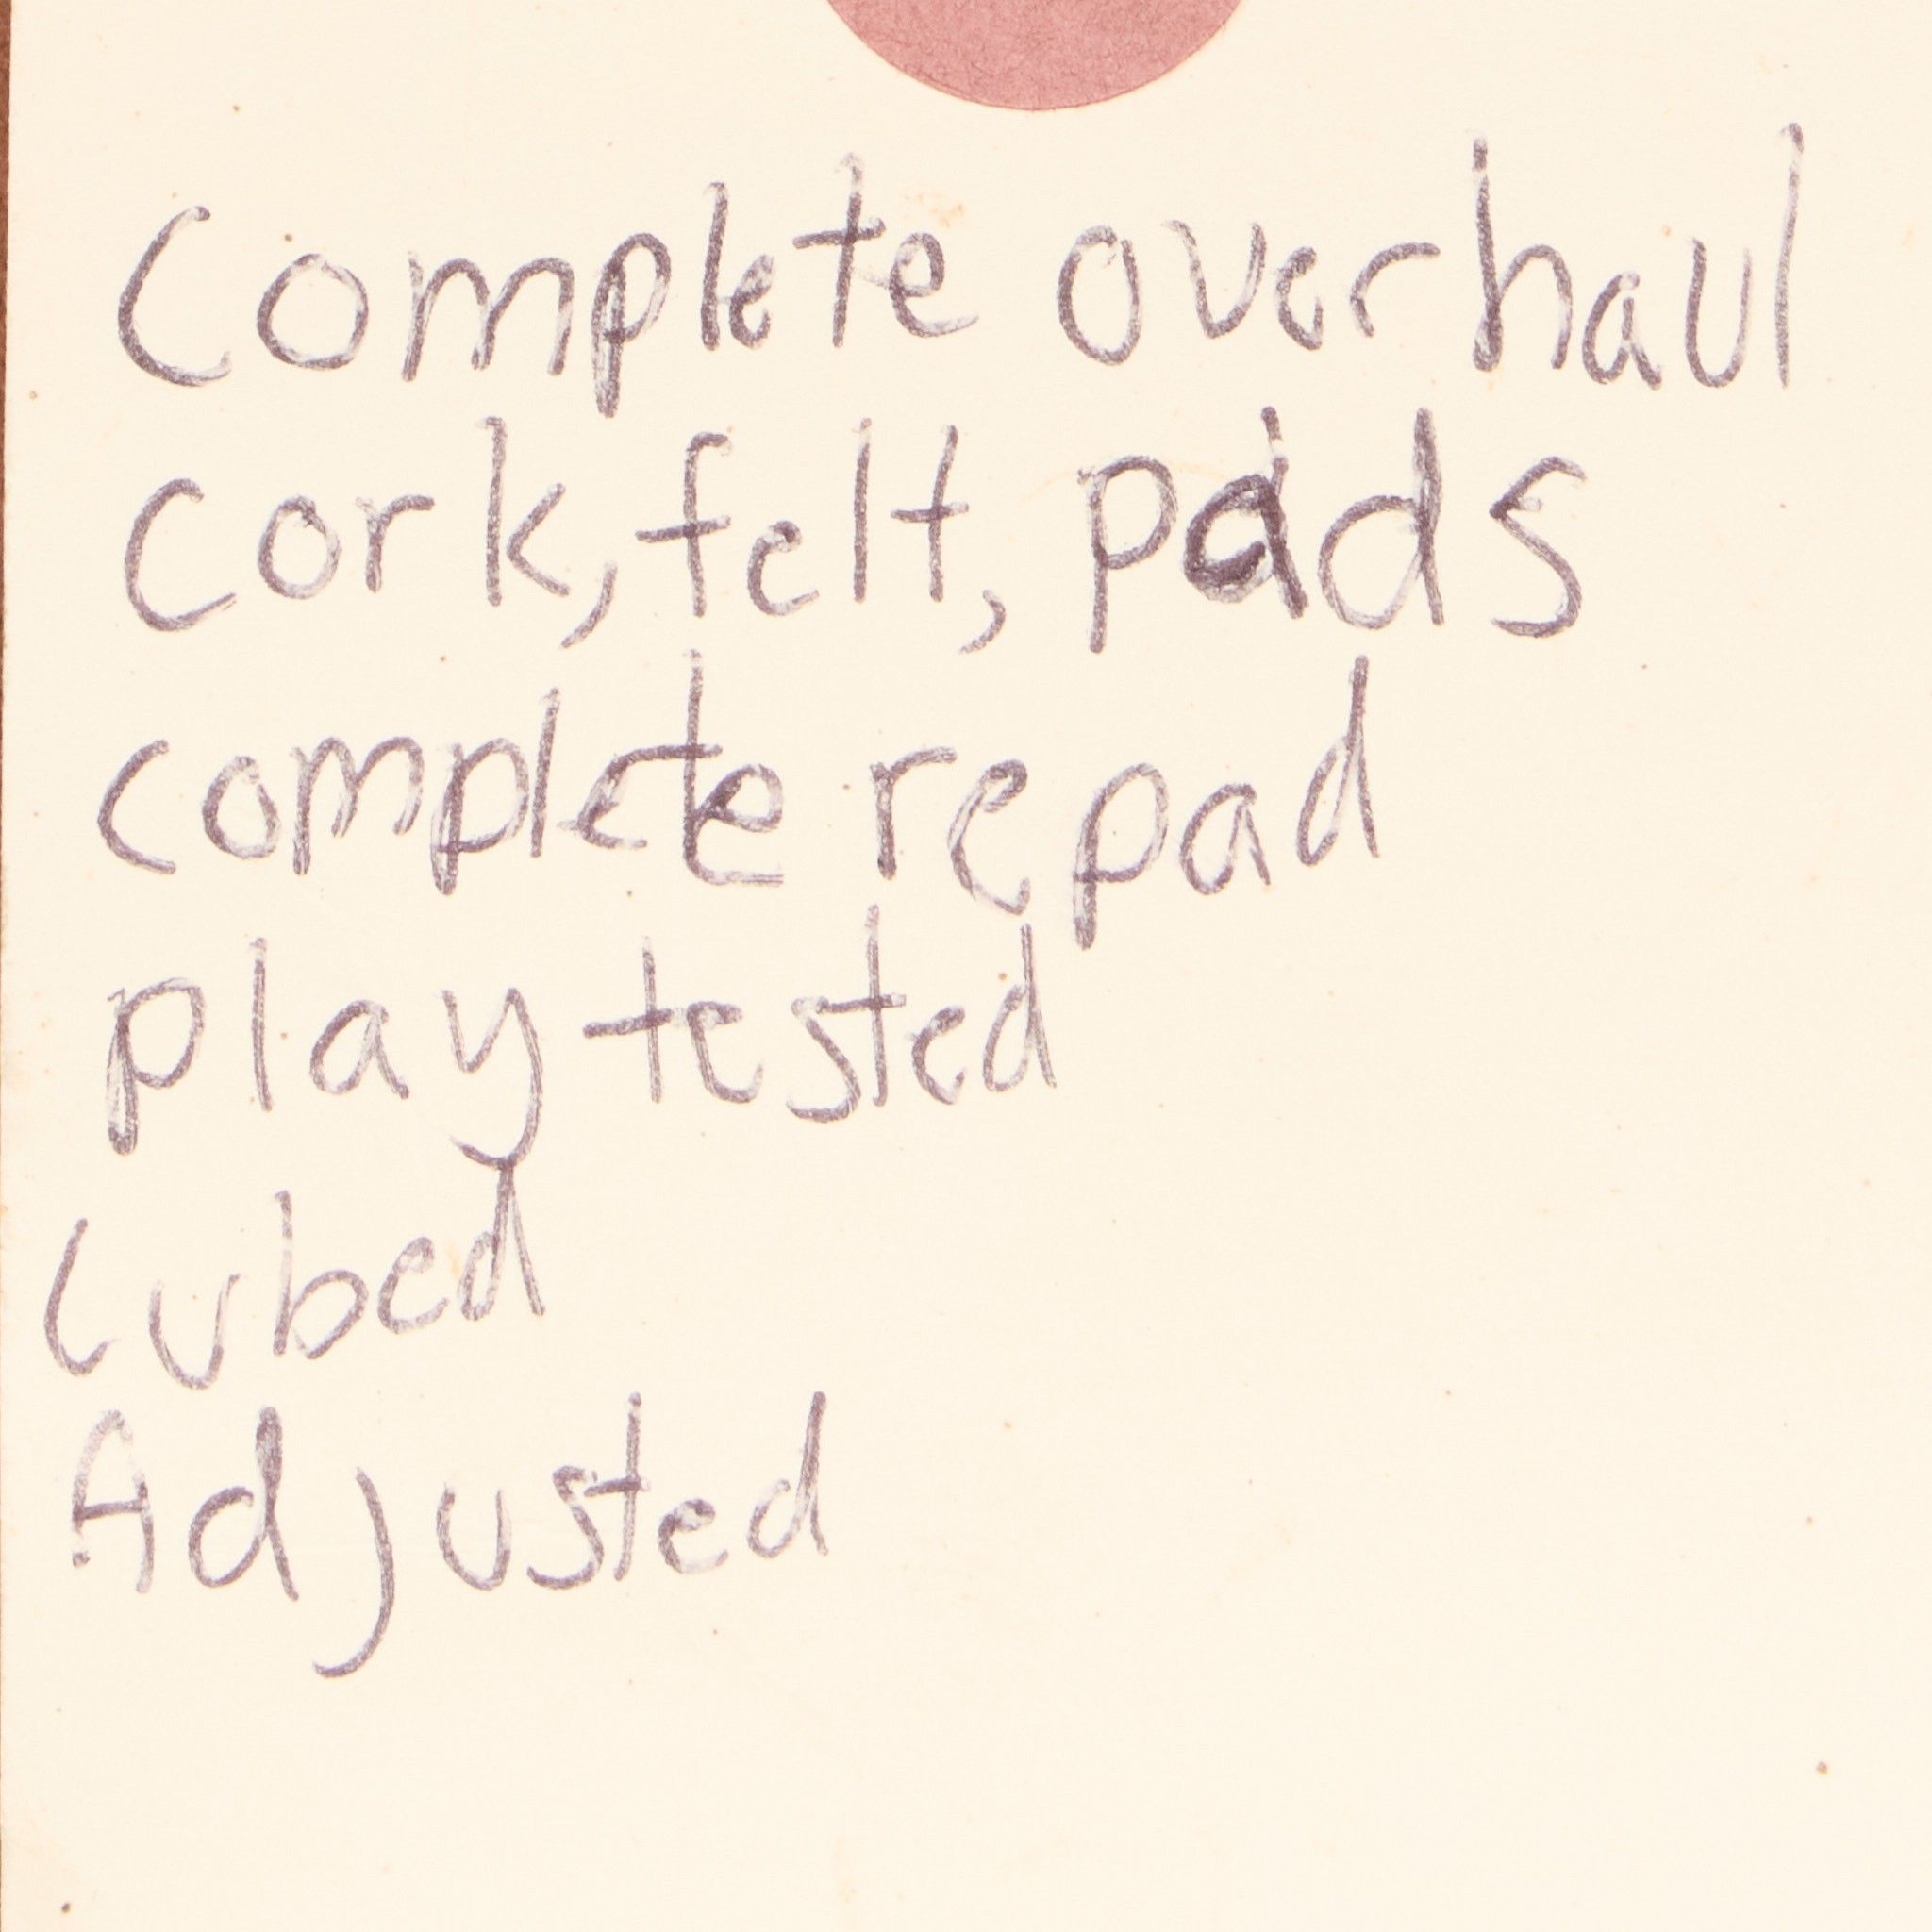 Complete overhaul
Cork, felt, pads
complete repad
play tested
Lubed
Adjusted